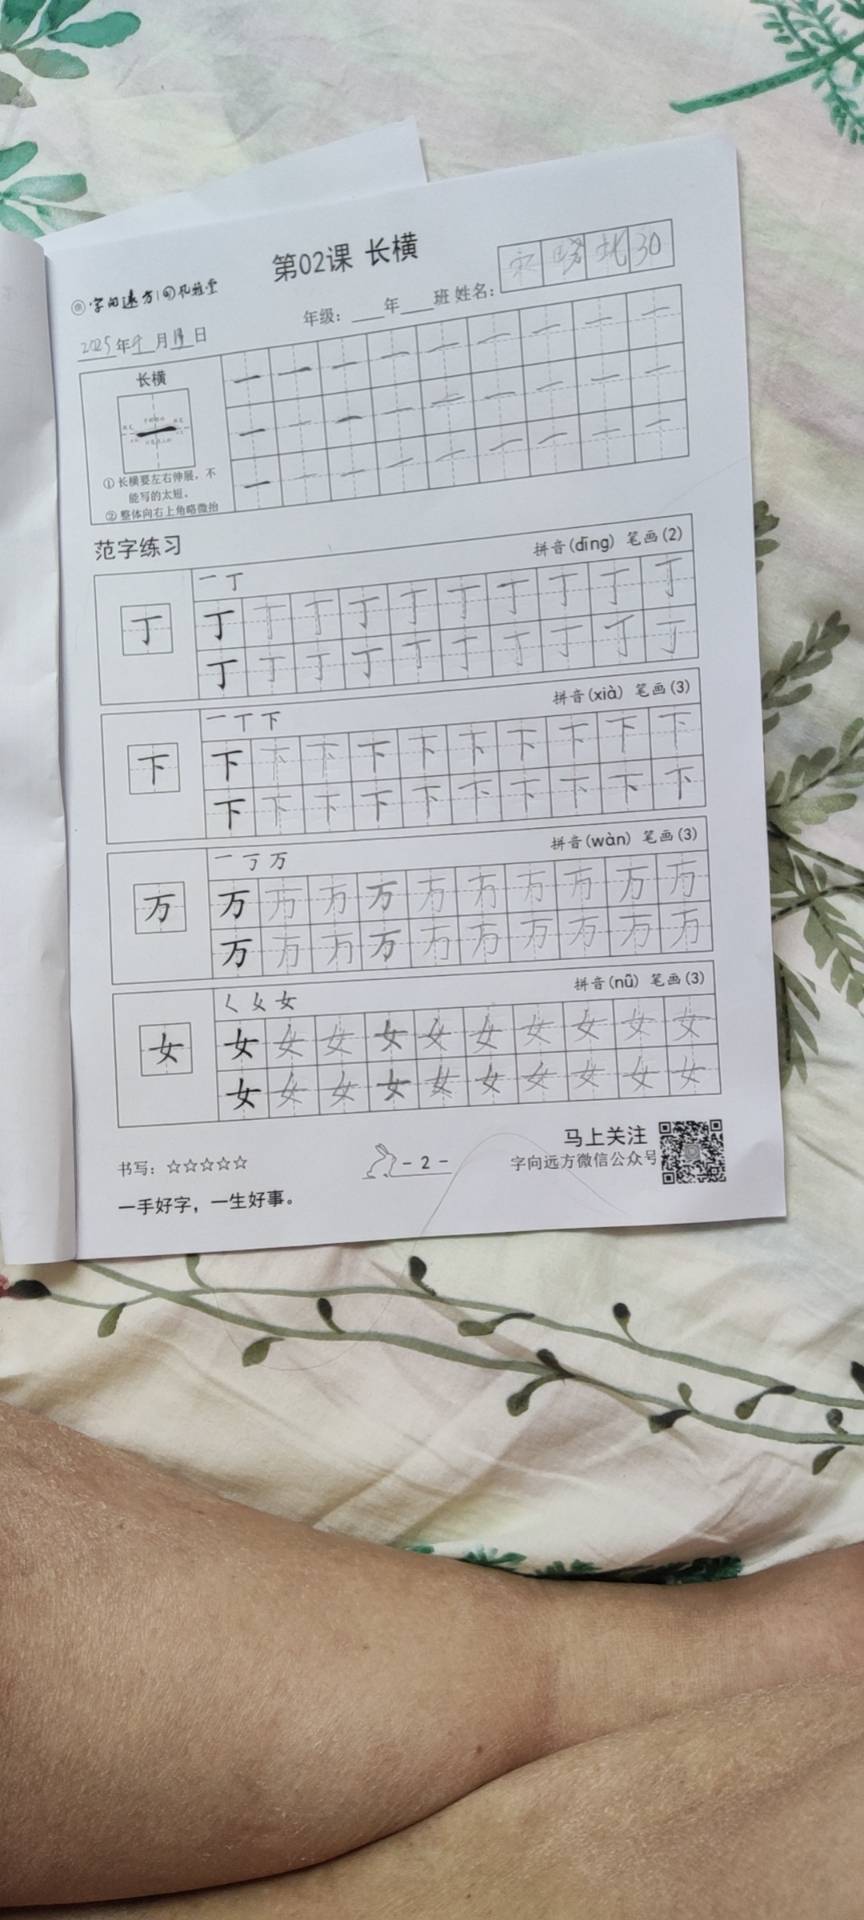 第02课 长横
字向远方
年级：____年____班 姓名：
宋 30
2025年 月 日
长横
一 一 一 一 一 一 一 一 一 一
一 一 一 一 一 一 一 一 一
一 一 一 一 一 一 一 一 一
①长横要左右伸展，不
能写的太短。
②整体向右上角略微抬
范字练习
拼音(dīng) 笔画(2)
一 丁
丁
丁 丁 丁 丁 丁 丁 丁 丁 丁 丁
丁 丁 丁 丁 丁 丁 丁 丁 丁 丁
拼音(xià) 笔画(3)
一 丅 下
下
下 下 下 下 下 下 下 下 下 下
下 下 下 下 下 下 下 下 下 下
拼音(wàn) 笔画(3)
一 丂 万
万
万 万 万 万 万 万 万 万 万 万
万 万 万 万 万 万 万 万 万 万
拼音(nǚ) 笔画(3)
女
女
女 女 女 女 女 女 女 女 女 女
女 女 女 女 女 女 女 女 女 女
书写：☆☆☆☆☆
- 2 -
马上关注
字向远方微信公众号
一手好字，一生好事。